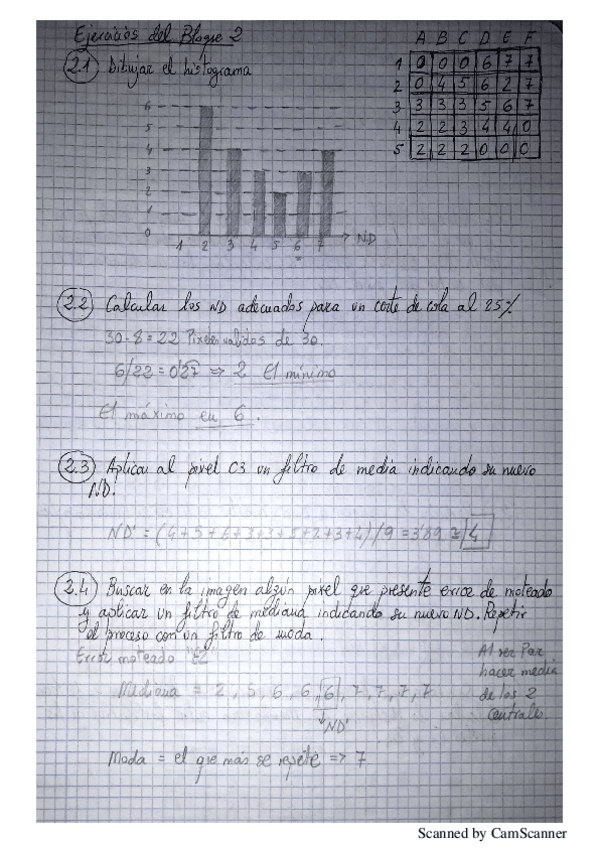 Ejercicios del Bloque 2
2.1 Dibujar el histograma
A B C D E F
1 0 0 0 6 7 7
2 0 4 5 6 2 7
3 3 3 3 5 6 7
4 2 2 3 4 4 0
5 2 2 2 0 0 0
6
5
4
3
2
1
0
1 2 3 4 5 6 7 → ND
2.2 Calcular los ND adecuados para un corte de cola al 25%
30-8=22 Pixeles validos de 30.
6/22 = 0'27 => 2 El mínimo
El máximo en 6.
2.3 Aplicar al pixel C3 un filtro de media indicando su nuevo
ND.
ND' = (4+5+6+3+3+5+2+3+4)/9 = 3'89 ≅ 4
2.4 Buscar en la imagen algún pixel que presente error de moteado
y aplicar un filtro de mediana indicando su nuevo ND. Repetir
el proceso con un filtro de moda.
Error moteado "E2"
Al ser Par
hacer media
de los 2
Mediana = 2, 5, 6, 6, 6, 7, 7, 7, 7
ND'
Moda = el que más se repite => 7
Scanned by CamScanner